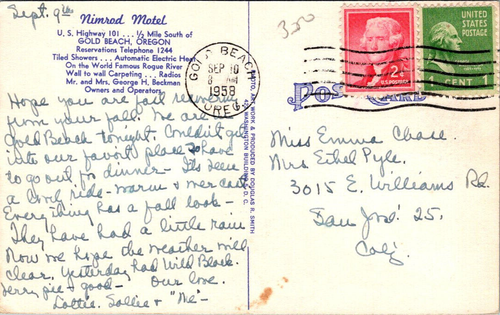 Sept. 9th
Nimrod Motel
U. S. Highway 101 . . . ½ Mile South of
GOLD BEACH, OREGON
Reservations Telephone 1244
Tiled Showers . . . Automatic Electric Heat
On the World Famous Rogue River
Wall to wall Carpeting . . . Radios
Mr. and Mrs. George H. Beckman
Owners and Operators
Hope you are fast recovering
from your fall. We are in
Gold Beach tonight. Couldn't get
into our favorit place so have
to go out for dinner - It's been
a cool ride - warm & overcast
Everything has a fall look -
They have had a little rain
Now we hope the weather will
clear. Yesterday had Wild Black-
berry pie - good - Our love.
Lottie. Sallie & "Me" -
PHOTO, ART WORK & PRODUCED BY DOUGLAS R. SMITH
WASHINGTON BUILDING, D. C.
350
GOLD BEACH
SEP 10
1958
OREG.
2¢
U.S. POSTAGE
UNITED STATES
POSTAGE
1 CENT 1
POST CARD
Miss Emma Chase.
Mrs Ethel Pyle.
3015 E. Williams Rd.
San Jose 25.
Calif.